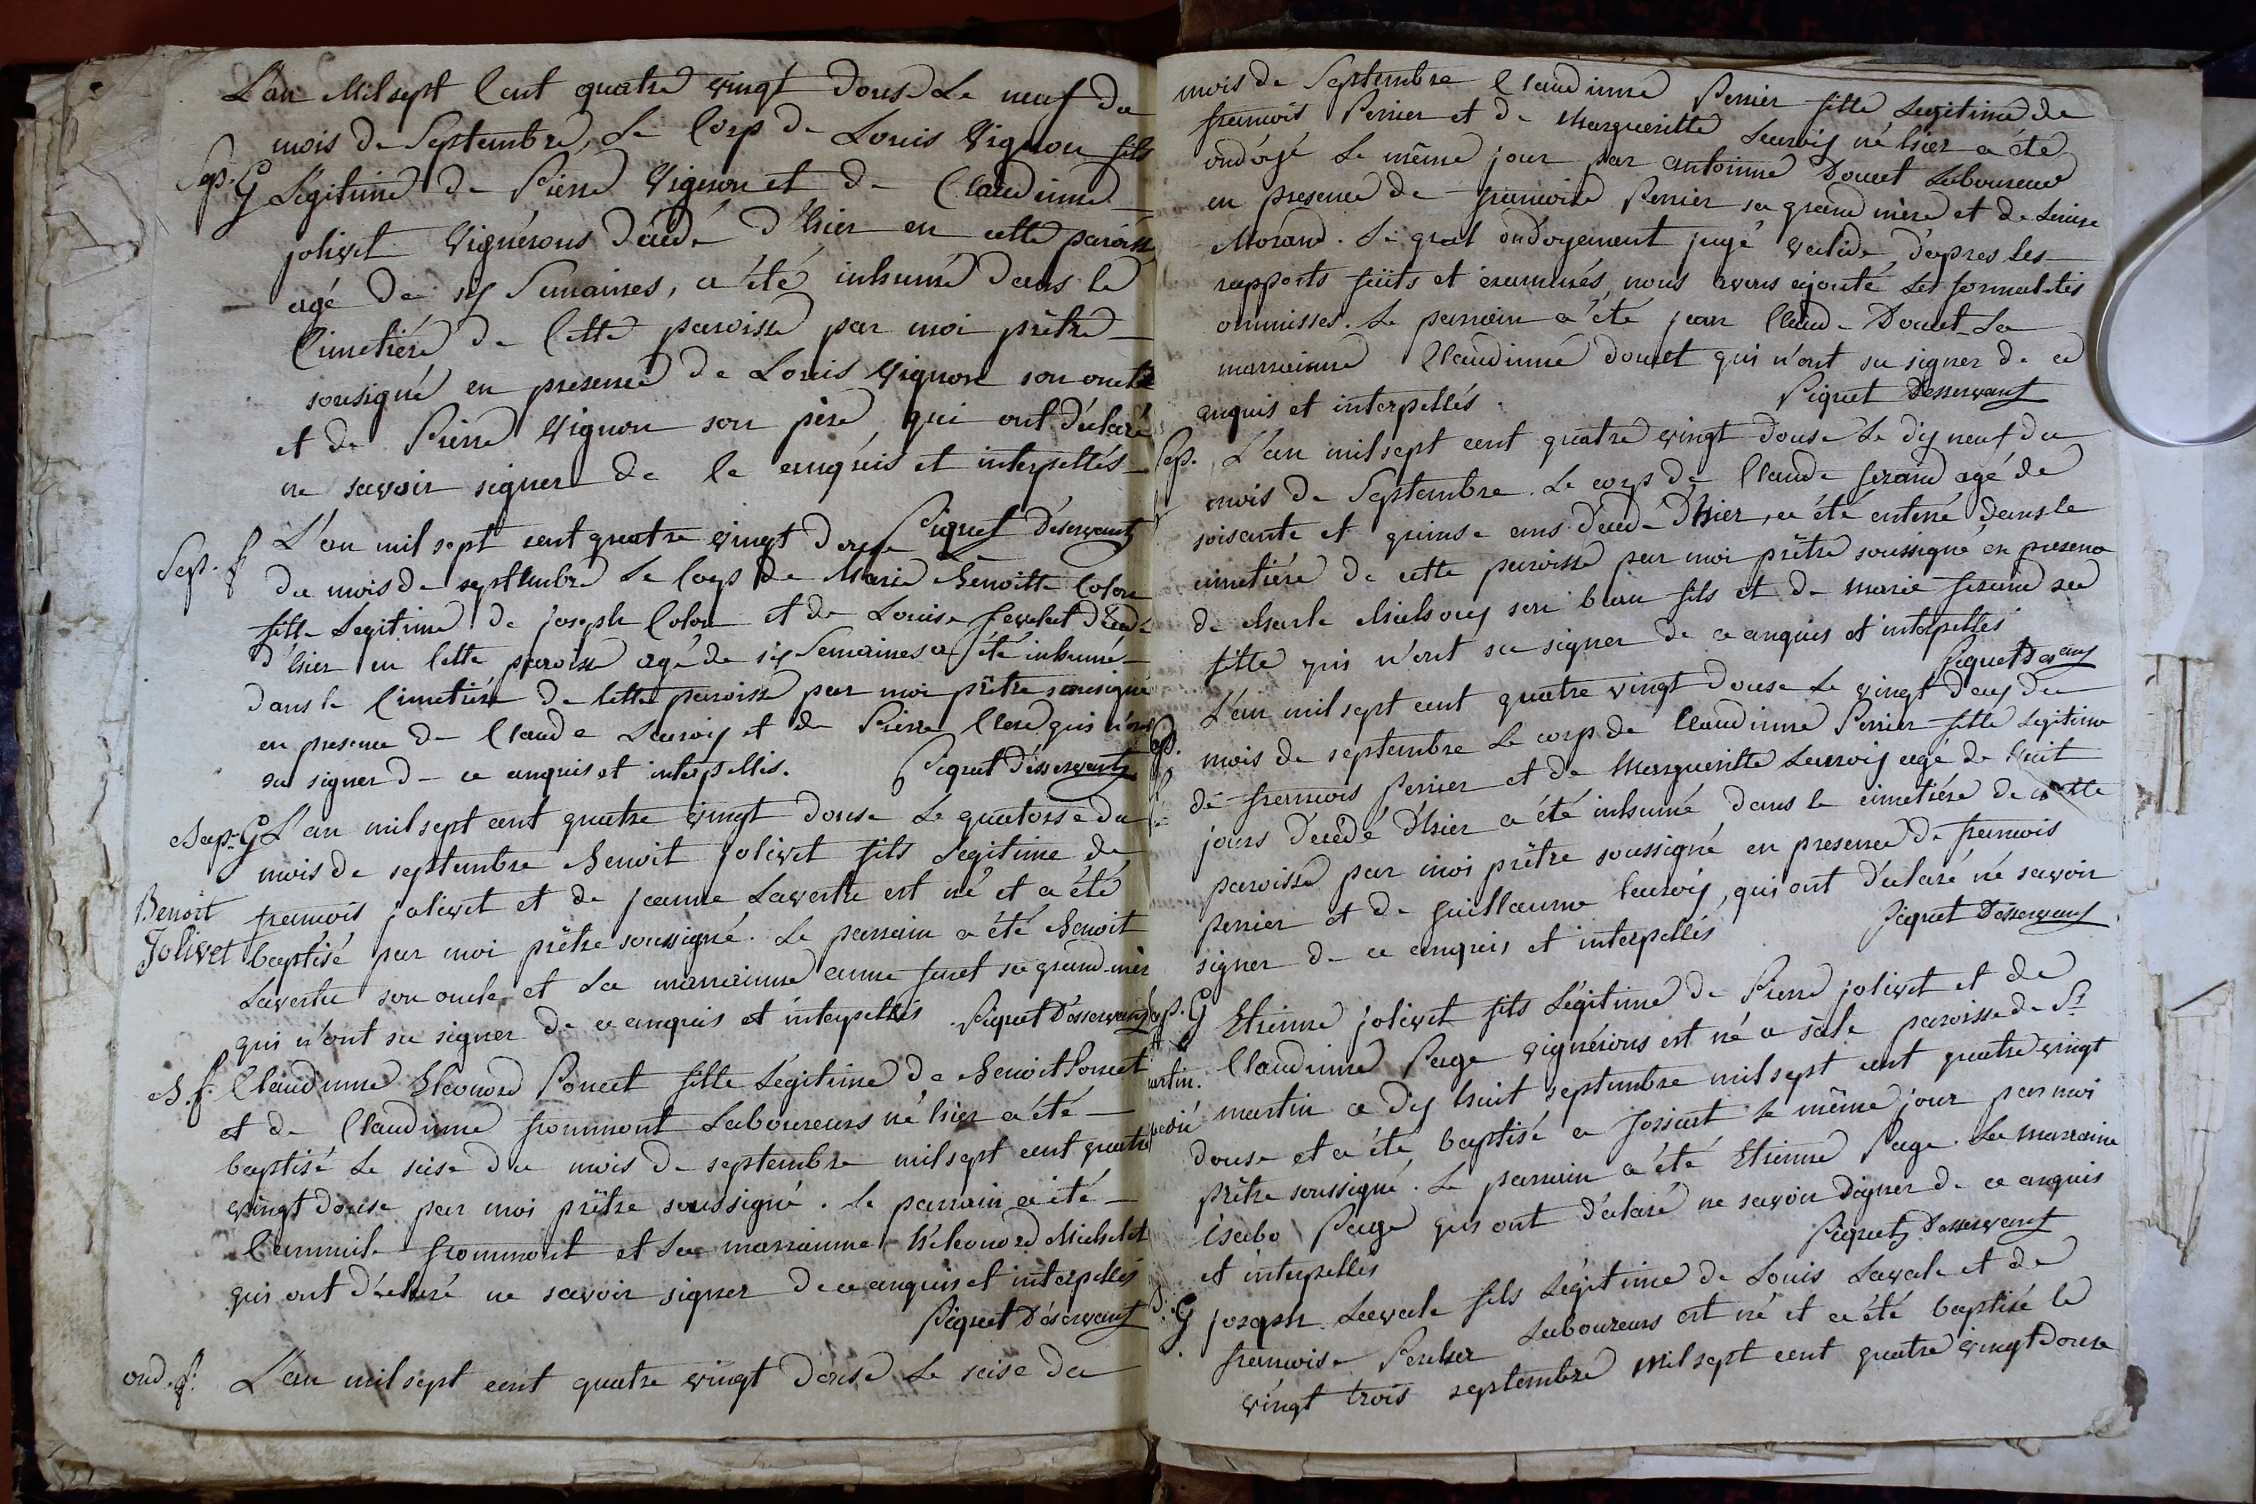 L'an Mil sept Cent quatre vingt douse Le neuf du
mois de Septembre, Le Corp de Louis Vignon fils
Sep. G Légitime de Pierre Vignon et de Claudinne
jolivet Vignérons décédé d'hier en cette paroisse
agé de six Semaines, a été inhumé dans le
Cimetiére de Cette paroisse par moi prêtre
sousigné en presence de Louis Vignon son oncle
et de Pierre Vignon son père qui ont déclaré
ne savoir signer de Ce enquéris et interpellés
Piquet Déservant
Sep. f L'an mil sept cent quatre vingt douse Le
du mois de septembre Le Corps de Marie Benoitte Colon
fille Legitime de joseph Colon et de Louise décédé
d'hier en Cette paroisse agé de six Semaines a été inhumé
dans le Cimetiére de Cette paroisse par moi prêtre sousigné
en presence de Claude Lauroy et de Pierre Clere qui n'ont
su signer de ce enquis et interpellés. Piquet désservant
Bap. G L'an mil sept cent quatre vingt douse Le quatorse du
mois de septembre Benoit jolivet fils Legitime de
Benoit
Jolivet
francois jolivet et de jeanne Lavertu est né et a été
baptisé par moi prêtre soussigné. Le parrain a été Benoit
Lavertu son oncle et La marrainne anne furet sa grand mèr
qui n'ont su signer de ce enquis et interpellés. Piquet Désservant
B. f. Claudinne Eléonord Poncet fille Légitime de Benoit Poncet
et de Claudinne frommont Laboureurs né hier a été
baptisé Le seise du mois de septembre mil sept cent quatre
vingt douse par moi prêtre soussigné. le parrain a été
frommont et La marrainne Michelet
qui ont déclaré ne savoir signer de ce enquis et interpellés
Piquet Déservant
ond. f. L'an mil sept cent quatre vingt douse Le seise du
mois de Septembre Claudinne Perrier fille Legitime de
francois Perrier et de Margueritte Lauroy né hier a été
ondoyé Le même jour par antoinne Doucet Laboureur
en presence de francoise Perrier sa grand mère et de
Morand. Le quel ondoyement jugé valide, d'apres les
rapports faits et examinés, nous avons ajouté Les formalités
ommisses. Le parrain a été jean Claude Doucet La
marrainne Claudinne doucet qui n'ont su signer de ce
enquis et interpellés. Piquet Desservant
Sep. L'an mil sept cent quatre vingt douse Le dix neuf du
mois de Septembre. Le corps de Claude ferand agé de
soisante et quinse ans décédé d'hier, a été enterré dans le
cimetiére de cette paroisse par moi prêtre soussigné en presence
de Charle son beau fils et de marie ferand sa
fille qui n'ont su signer de ce enquis et interpellés
Piquet
L'an mil sept cent quatre vingt douse Le vingt deux du
Sep. mois de septembre Le corps de Claudinne Perrier fille Legitime
de francois Perrier et de Margueritte Lauroy agé de huit
jours décédé d'hier a été inhumé dans le cimetiére de cette
paroisse par moi prêtre soussigné en presence de francois
perrier et de guillaume lauroy, qui ont déclaré né savoir
signer de ce enquis et interpellés Piquet Désservant
Bap. G Etienne jolivet fils Légitime de Pierre jolivet et de
Claudinne Page vignérons est né a sale paroisse de St
martin.
martin ce dix huit septembre mil sept cent quatre vingt
douse et a été baptisé a le même jour par moi
prêtre soussigné. Le parrain a été Etienne Page. La marraine
Page qui ont déclaré ne savoir signer de ce enquis
et interpellés Piquet Desservant
G joseph Lavale fils Légitime de Louis Lavale et de
francoise Laboureurs est né et a été baptisé le
vingt trois septembre mil sept cent quatre vingt douse